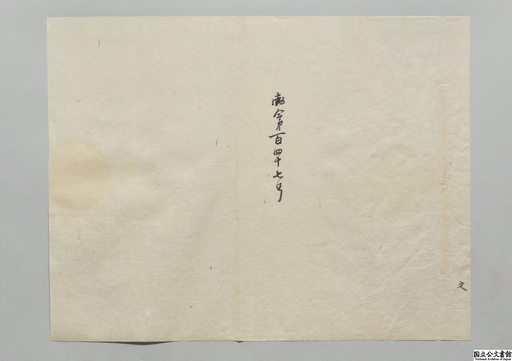 勅令第百四十七号
文
国立公文書館
National Archives of Japan